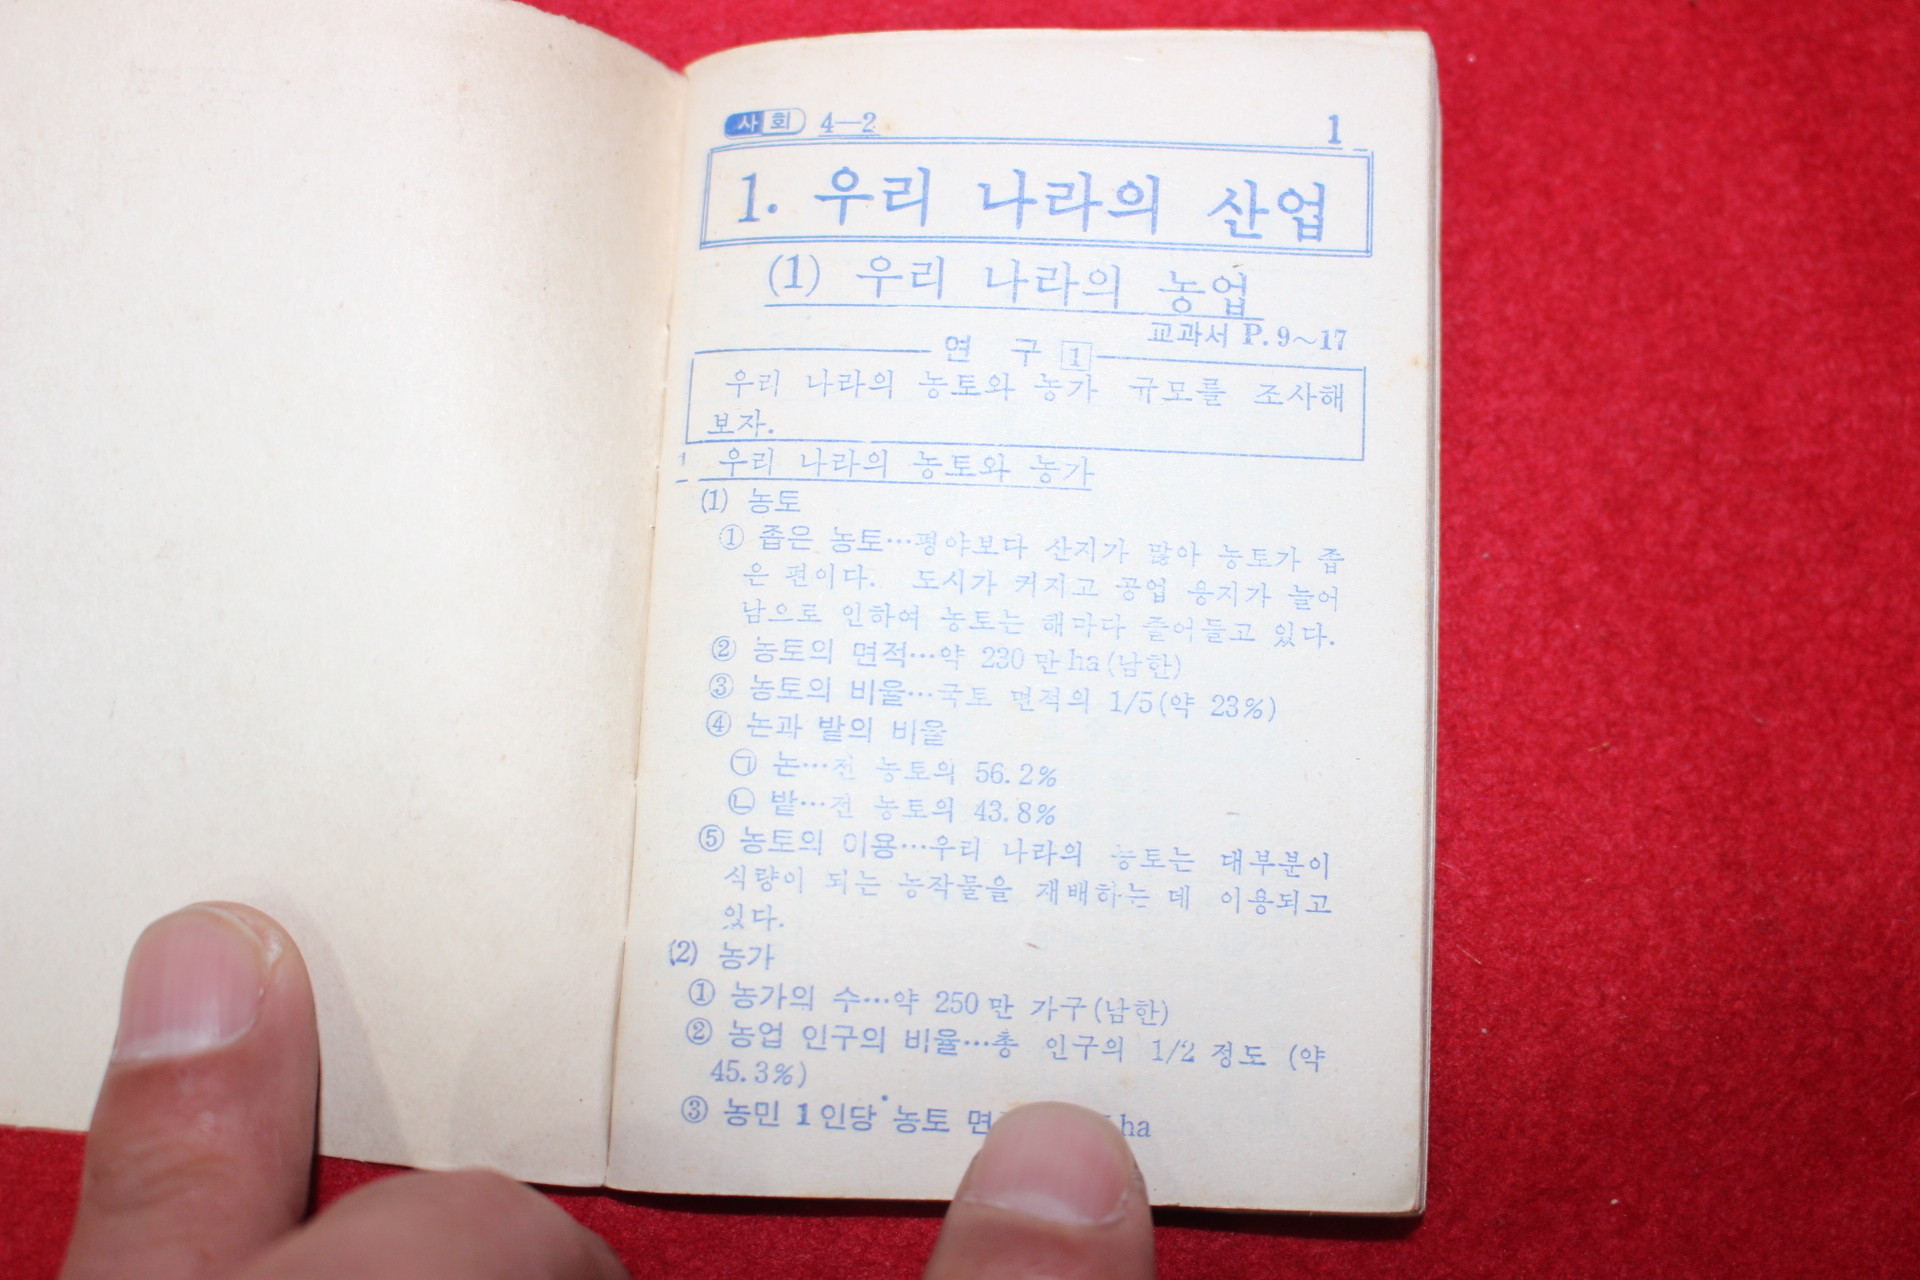 사회 4—2 1
1. 우리 나라의 산업
(1) 우리 나라의 농업
교과서 P. 9~17
연 구 1
우리 나라의 농토와 농가 규모를 조사해
보자.
1 우리 나라의 농토와 농가
(1) 농토
① 좁은 농토…평야보다 산지가 많아 농토가 좁
은 편이다. 도시가 커지고 공업 용지가 늘어
남으로 인하여 농토는 해마다 줄어들고 있다.
② 농토의 면적…약 230만ha(남한)
③ 농토의 비율…국토 면적의 1/5(약 23%)
④ 논과 밭의 비율
㉠ 논…전 농토의 56.2%
㉡ 밭…전 농토의 43.8%
⑤ 농토의 이용…우리 나라의 농토는 대부분이
식량이 되는 농작물을 재배하는 데 이용되고
있다.
(2) 농가
① 농가의 수…약 250만 가구(남한)
② 농업 인구의 비율…총 인구의 1/2 정도 (약
45.3%)
③ 농민 1인당 농토 ha